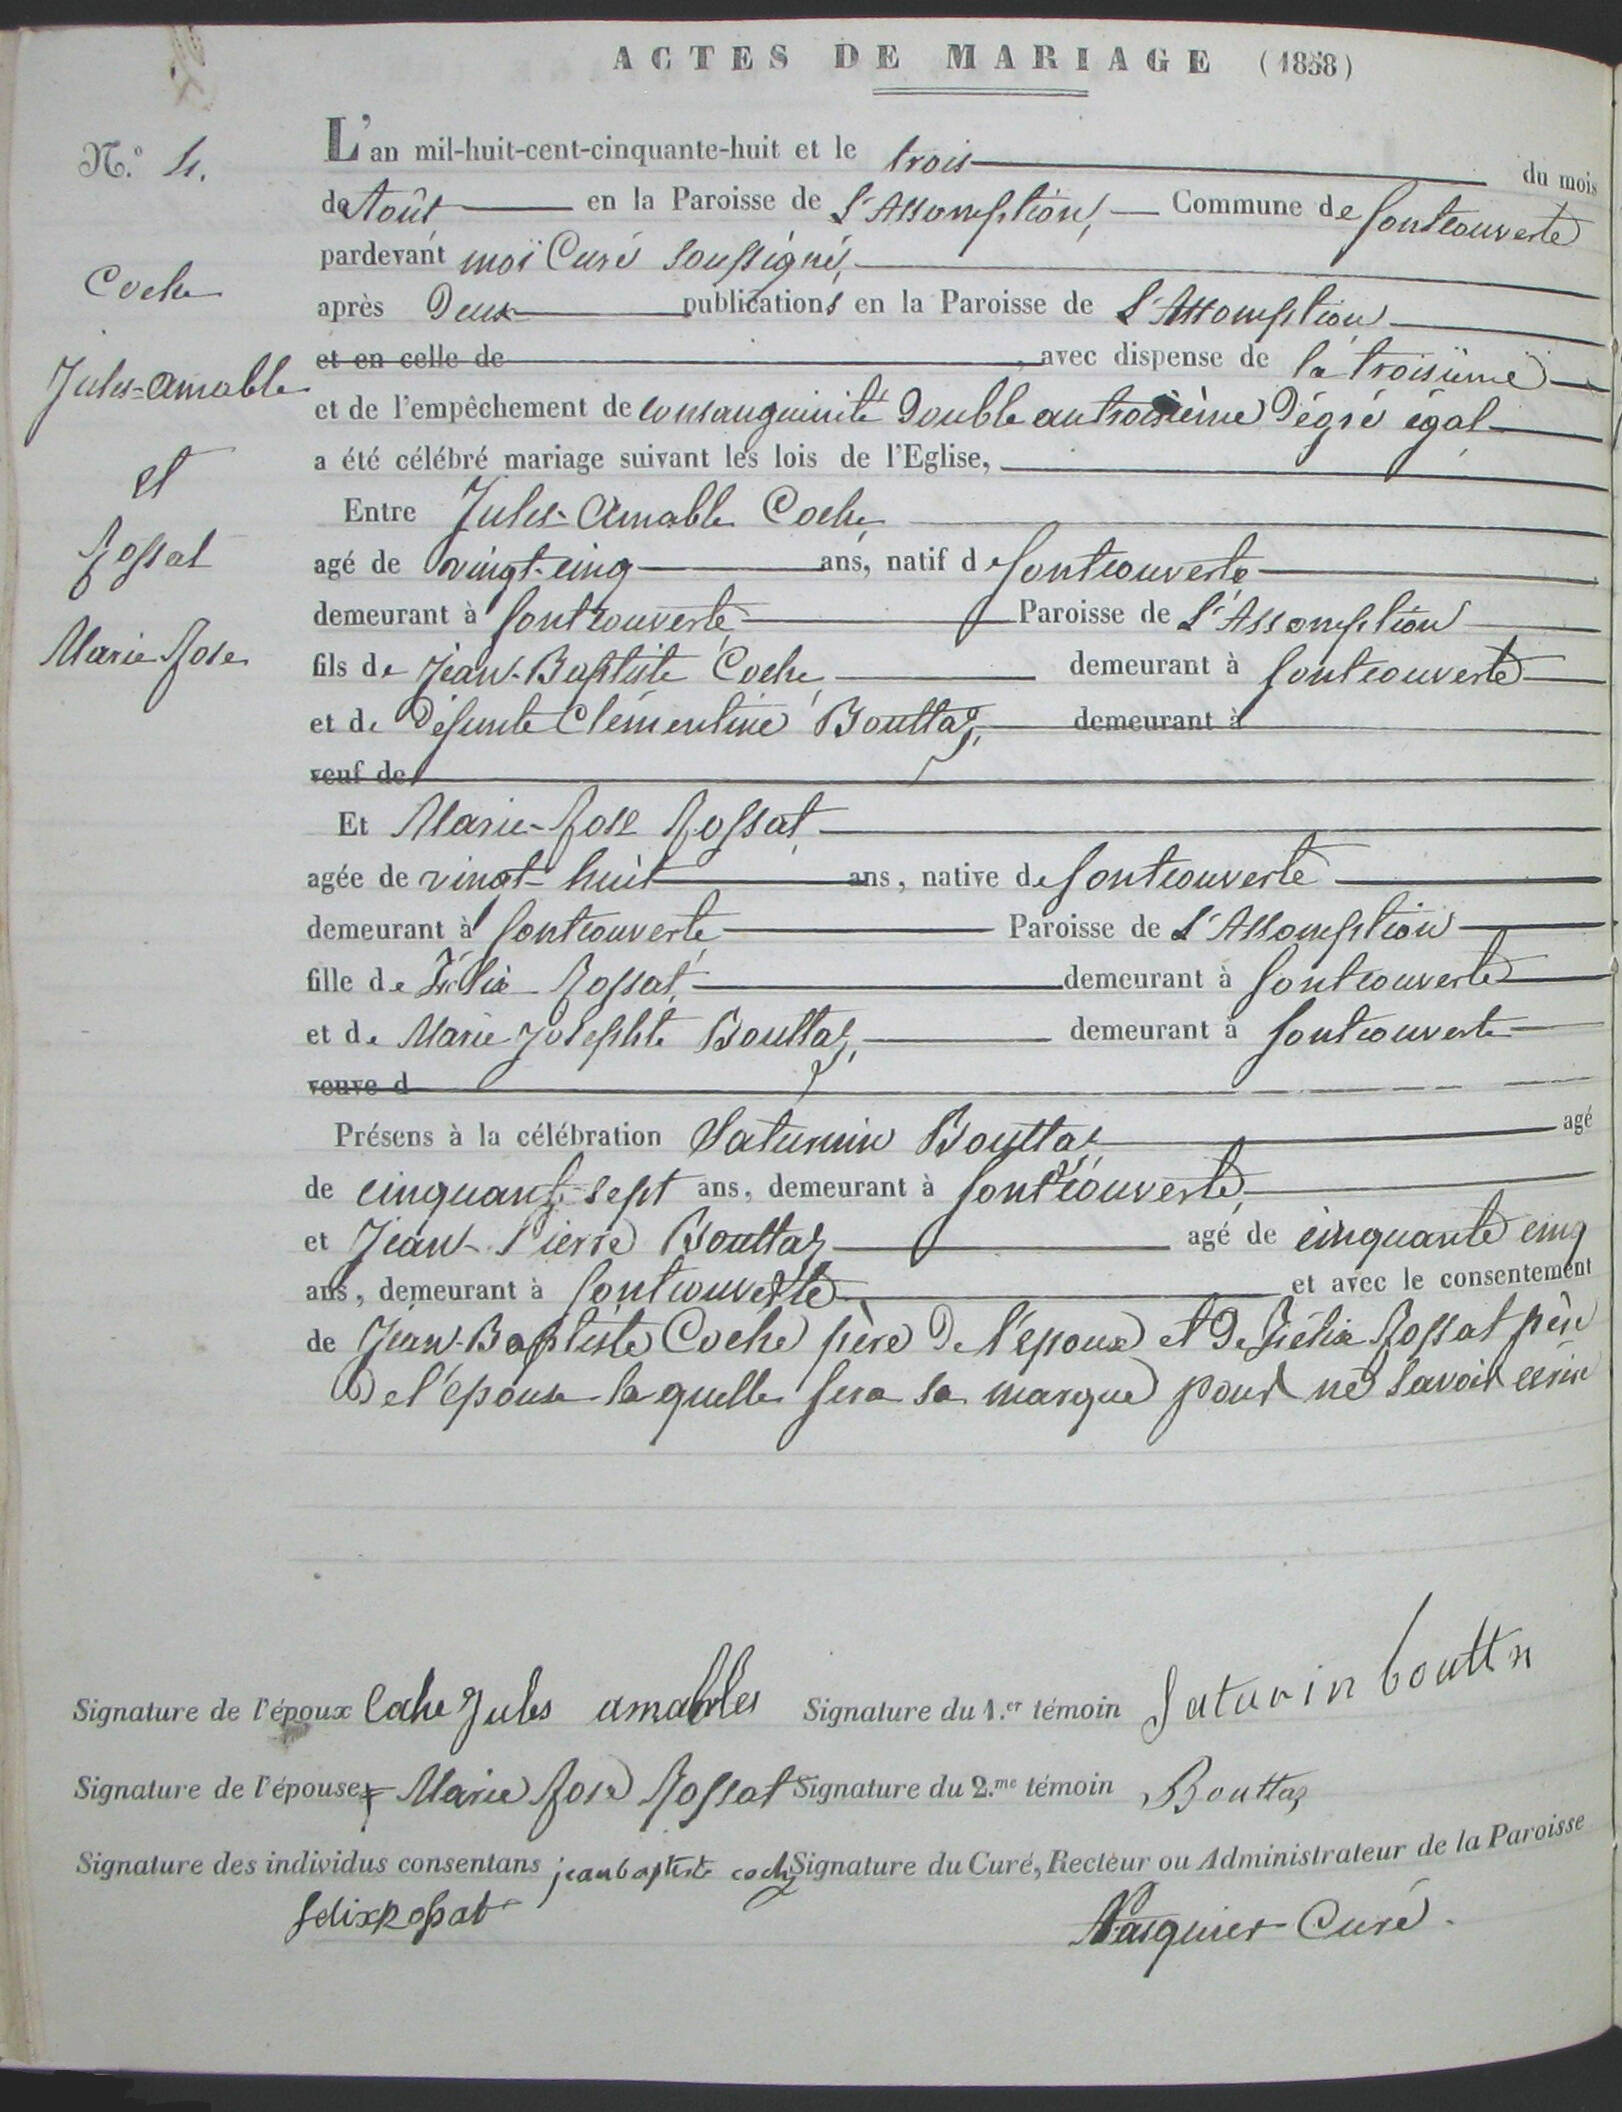 ACTES DE MARIAGE (1858)
N.º 4.
Coche
Jules-Amable
et
Rossat
Marie Rose
L'an mil-huit-cent-cinquante-huit et le trois du mois
de Août en la Paroisse de L'Assomption, Commune de fontcouverte
pardevant moi Curé soussigné,
après Deux publications en la Paroisse de L'Assomption
et en celle de avec dispense de la troisième
et de l'empêchement de consanguinité Double au troisième Dégré égal
a été célébré mariage suivant les lois de l'Eglise,
Entre Jules-Amable Coche
agé de vingt-cinq ans, natif de fontcouverte
demeurant à fontcouverte Paroisse de L'Assomption
fils de Jean-Baptiste Coche demeurant à fontcouverte
et de Défunte Clémentine Bouttaz, demeurant à
veuf de
Et Marie-Rose Rossat,
agée de vingt-huit ans, native de fontcouverte
demeurant à fontcouverte Paroisse de L'Assomption
fille de Félix Rossat, demeurant à fontcouverte
et de Marie Josephte Bouttaz, demeurant à fontcouverte
veuve d
Présens à la célébration Saturnin Bouttaz agé
de cinquante-sept ans, demeurant à fontcouverte,
et Jean-Pierre Bouttaz agé de cinquante cinq
ans, demeurant à fontcouverte et avec le consentement
de Jean-Baptiste Coche père De l'époux et De Félix Rossat père
De l'épouse laquelle fera sa marque pour ne savoir écrire
Signature de l'époux Cohe Jules amables Signature du 1.er témoin Saturin bouttn
Signature de l'épouse + Marie Rose Rossat Signature du 2.me témoin Bouttaz
Signature des individus consentans jean baptiste coche Signature du Curé, Recteur ou Administrateur de la Paroisse
felix Rossat Pasquier Curé.